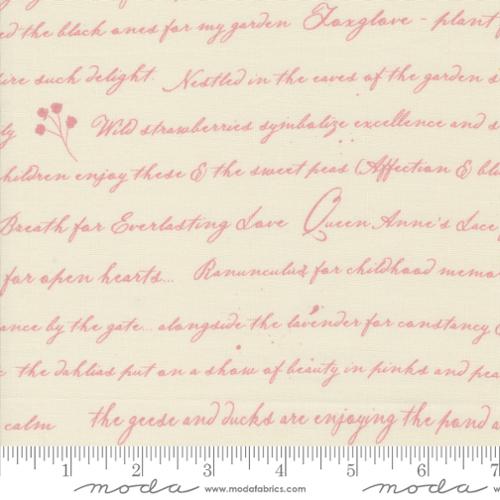 ed the black ones for my garden Foxglove - plant
ire such delight. Nestled in the eaves of the garden s
ly Wild strawberries symbolize excellence and s
children enjoy these & the sweet peas (Affection & bli
Breath for Everlasting Love Queen Anne's Lace
for open hearts... Ranunculus for childhood memo
ance by the gate... alongside the lavender for constancy
the dahlias put on a show of beauty in pinks and pea
calm the geese and ducks are enjoying the pond a
1 2 3 4 5 6 7
moda www.modafabrics.com moda